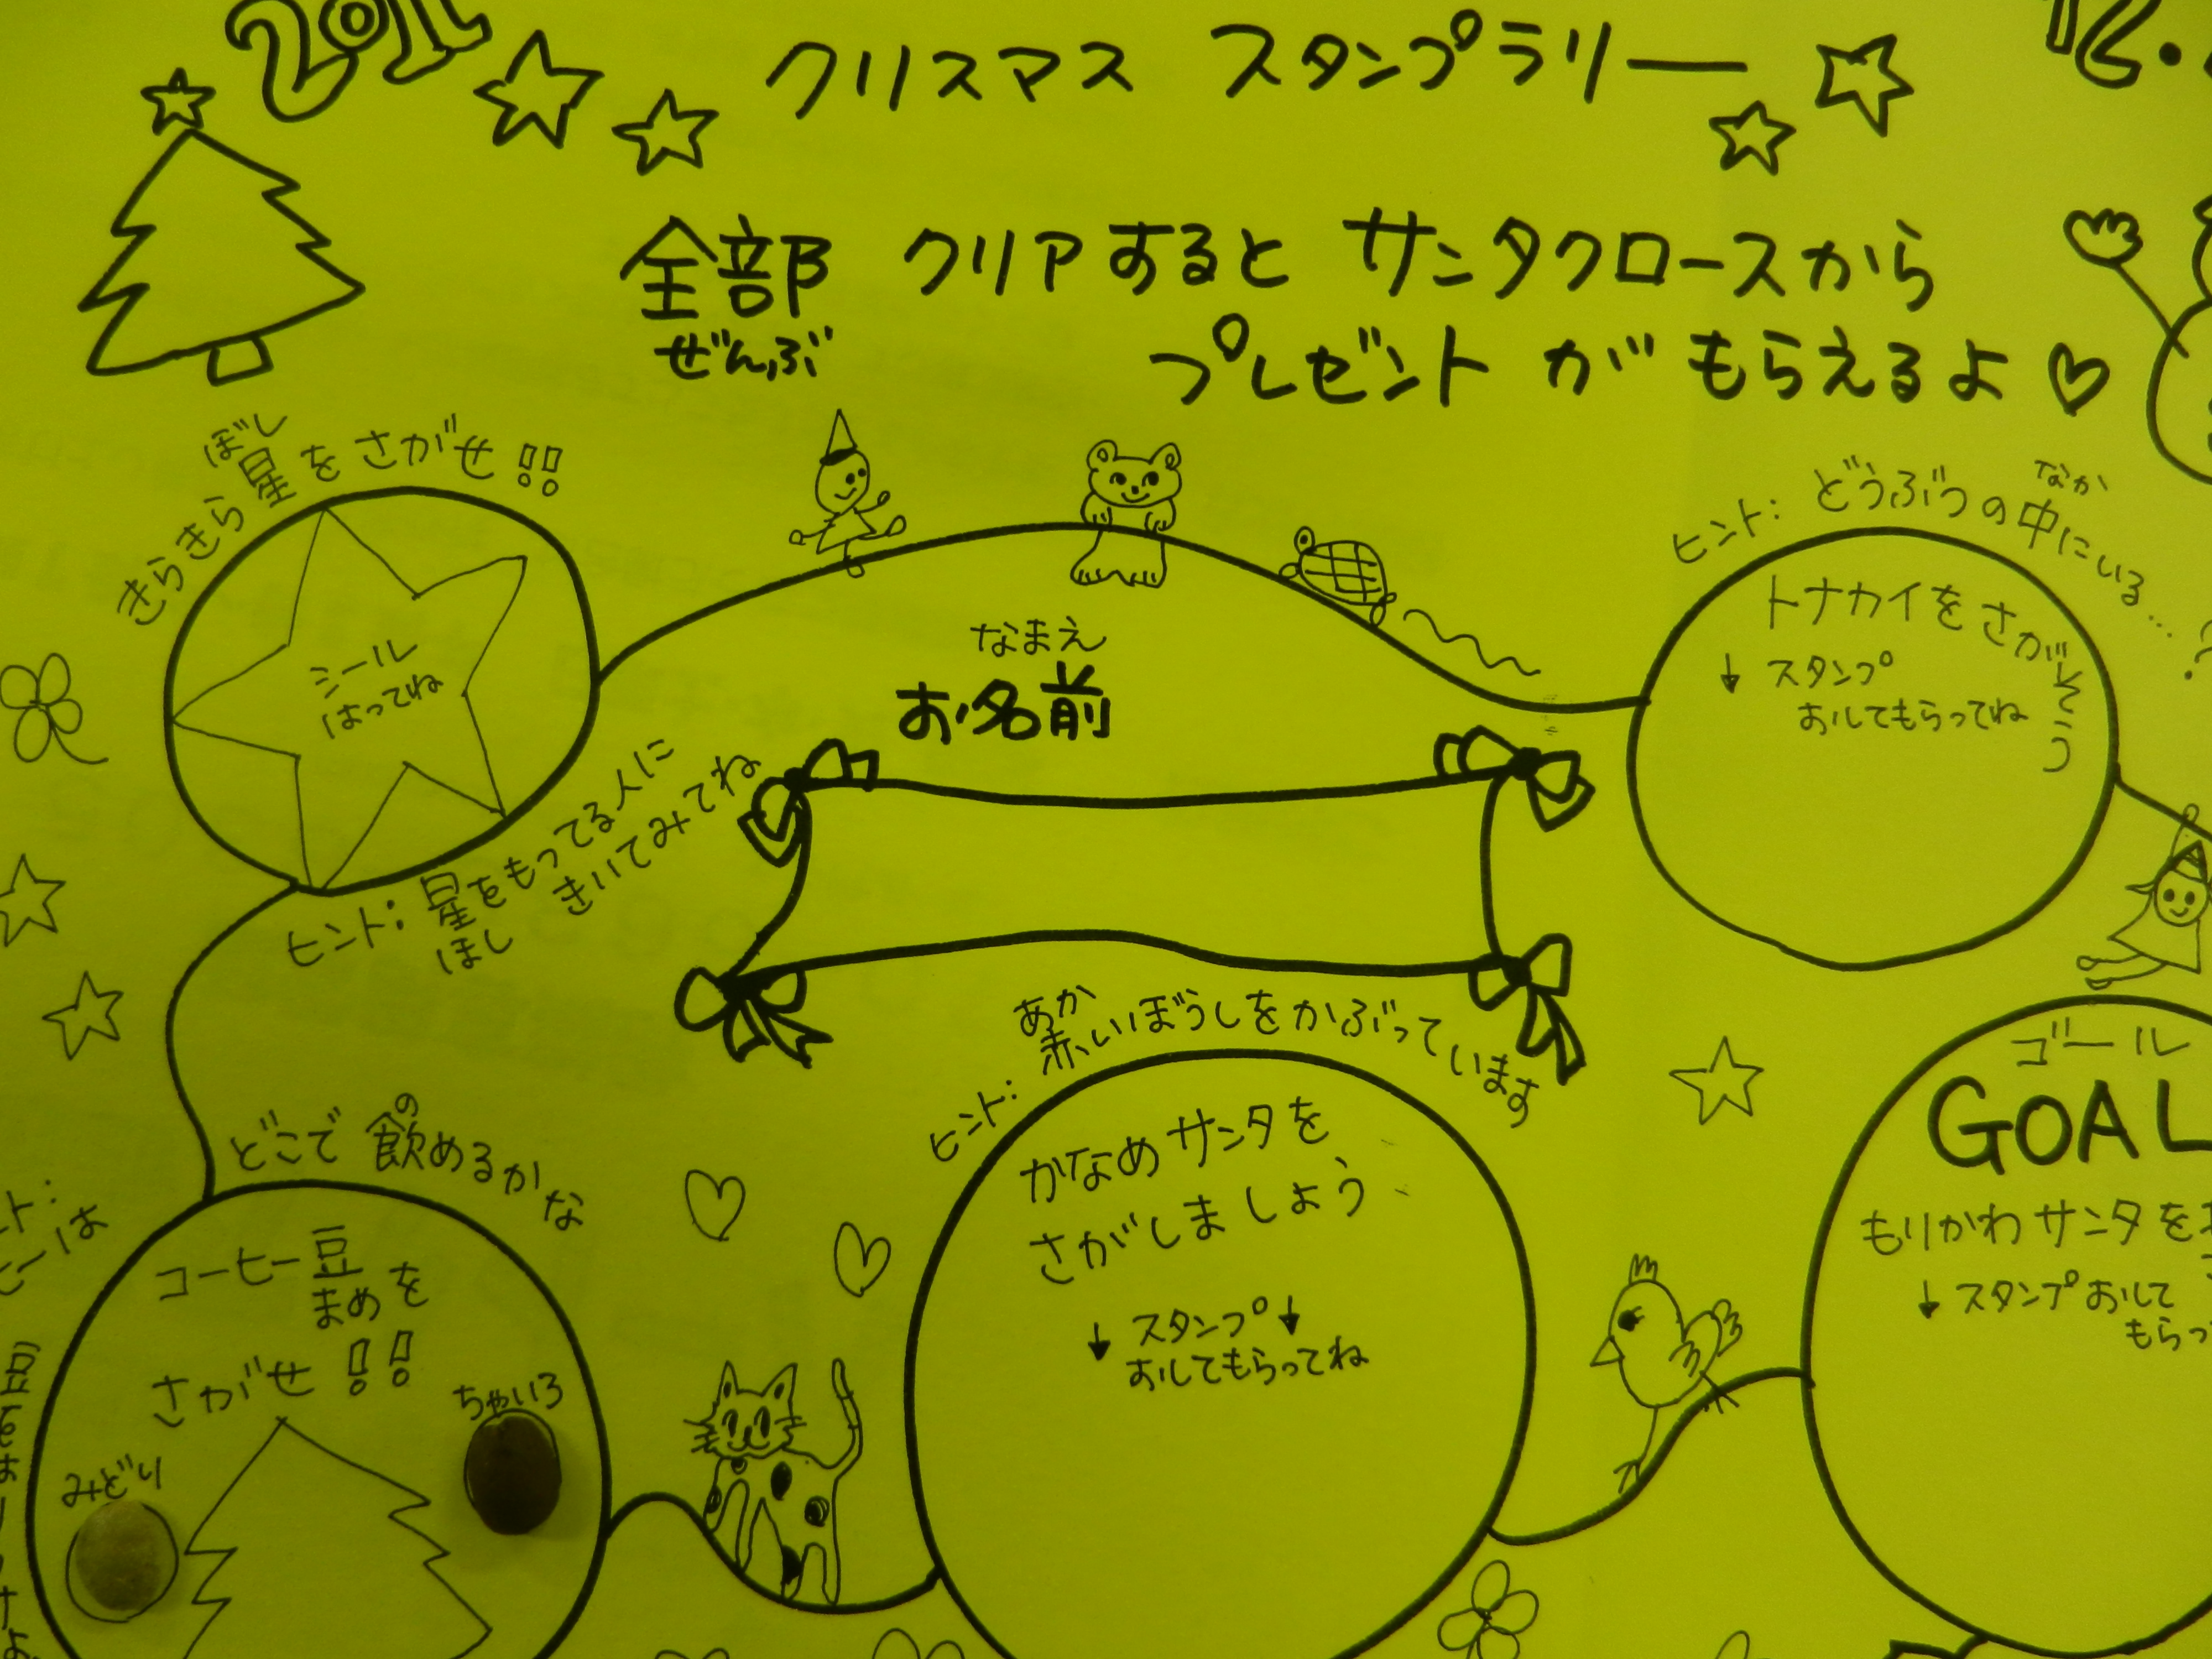 201
クリスマス スタンプラリー
12.
全部 クリアすると サンタクロースから
ぜんぶ
プレゼント が もらえるよ♡
ぼし
きらきら星をさがせ!!
シール
はってね
ヒント: 星をもってる人に
ほし
きいてみてね
なまえ
お名前
なか
ヒント: どうぶつの中にいる…?
トナカイをさがそう
↓ スタンプ
おしてもらってね
あか
ヒント: 赤いぼうしをかぶっています
かなめサンタを
さがしましょう
↓ スタンプ ↓
おしてもらってね
ゴール
GOAL
もりかわサンタを
↓ スタンプおして
もらっ
の
どこで飲めるかな
コーヒー豆を
まめ
さがせ!!
ちゃいろ
みどり